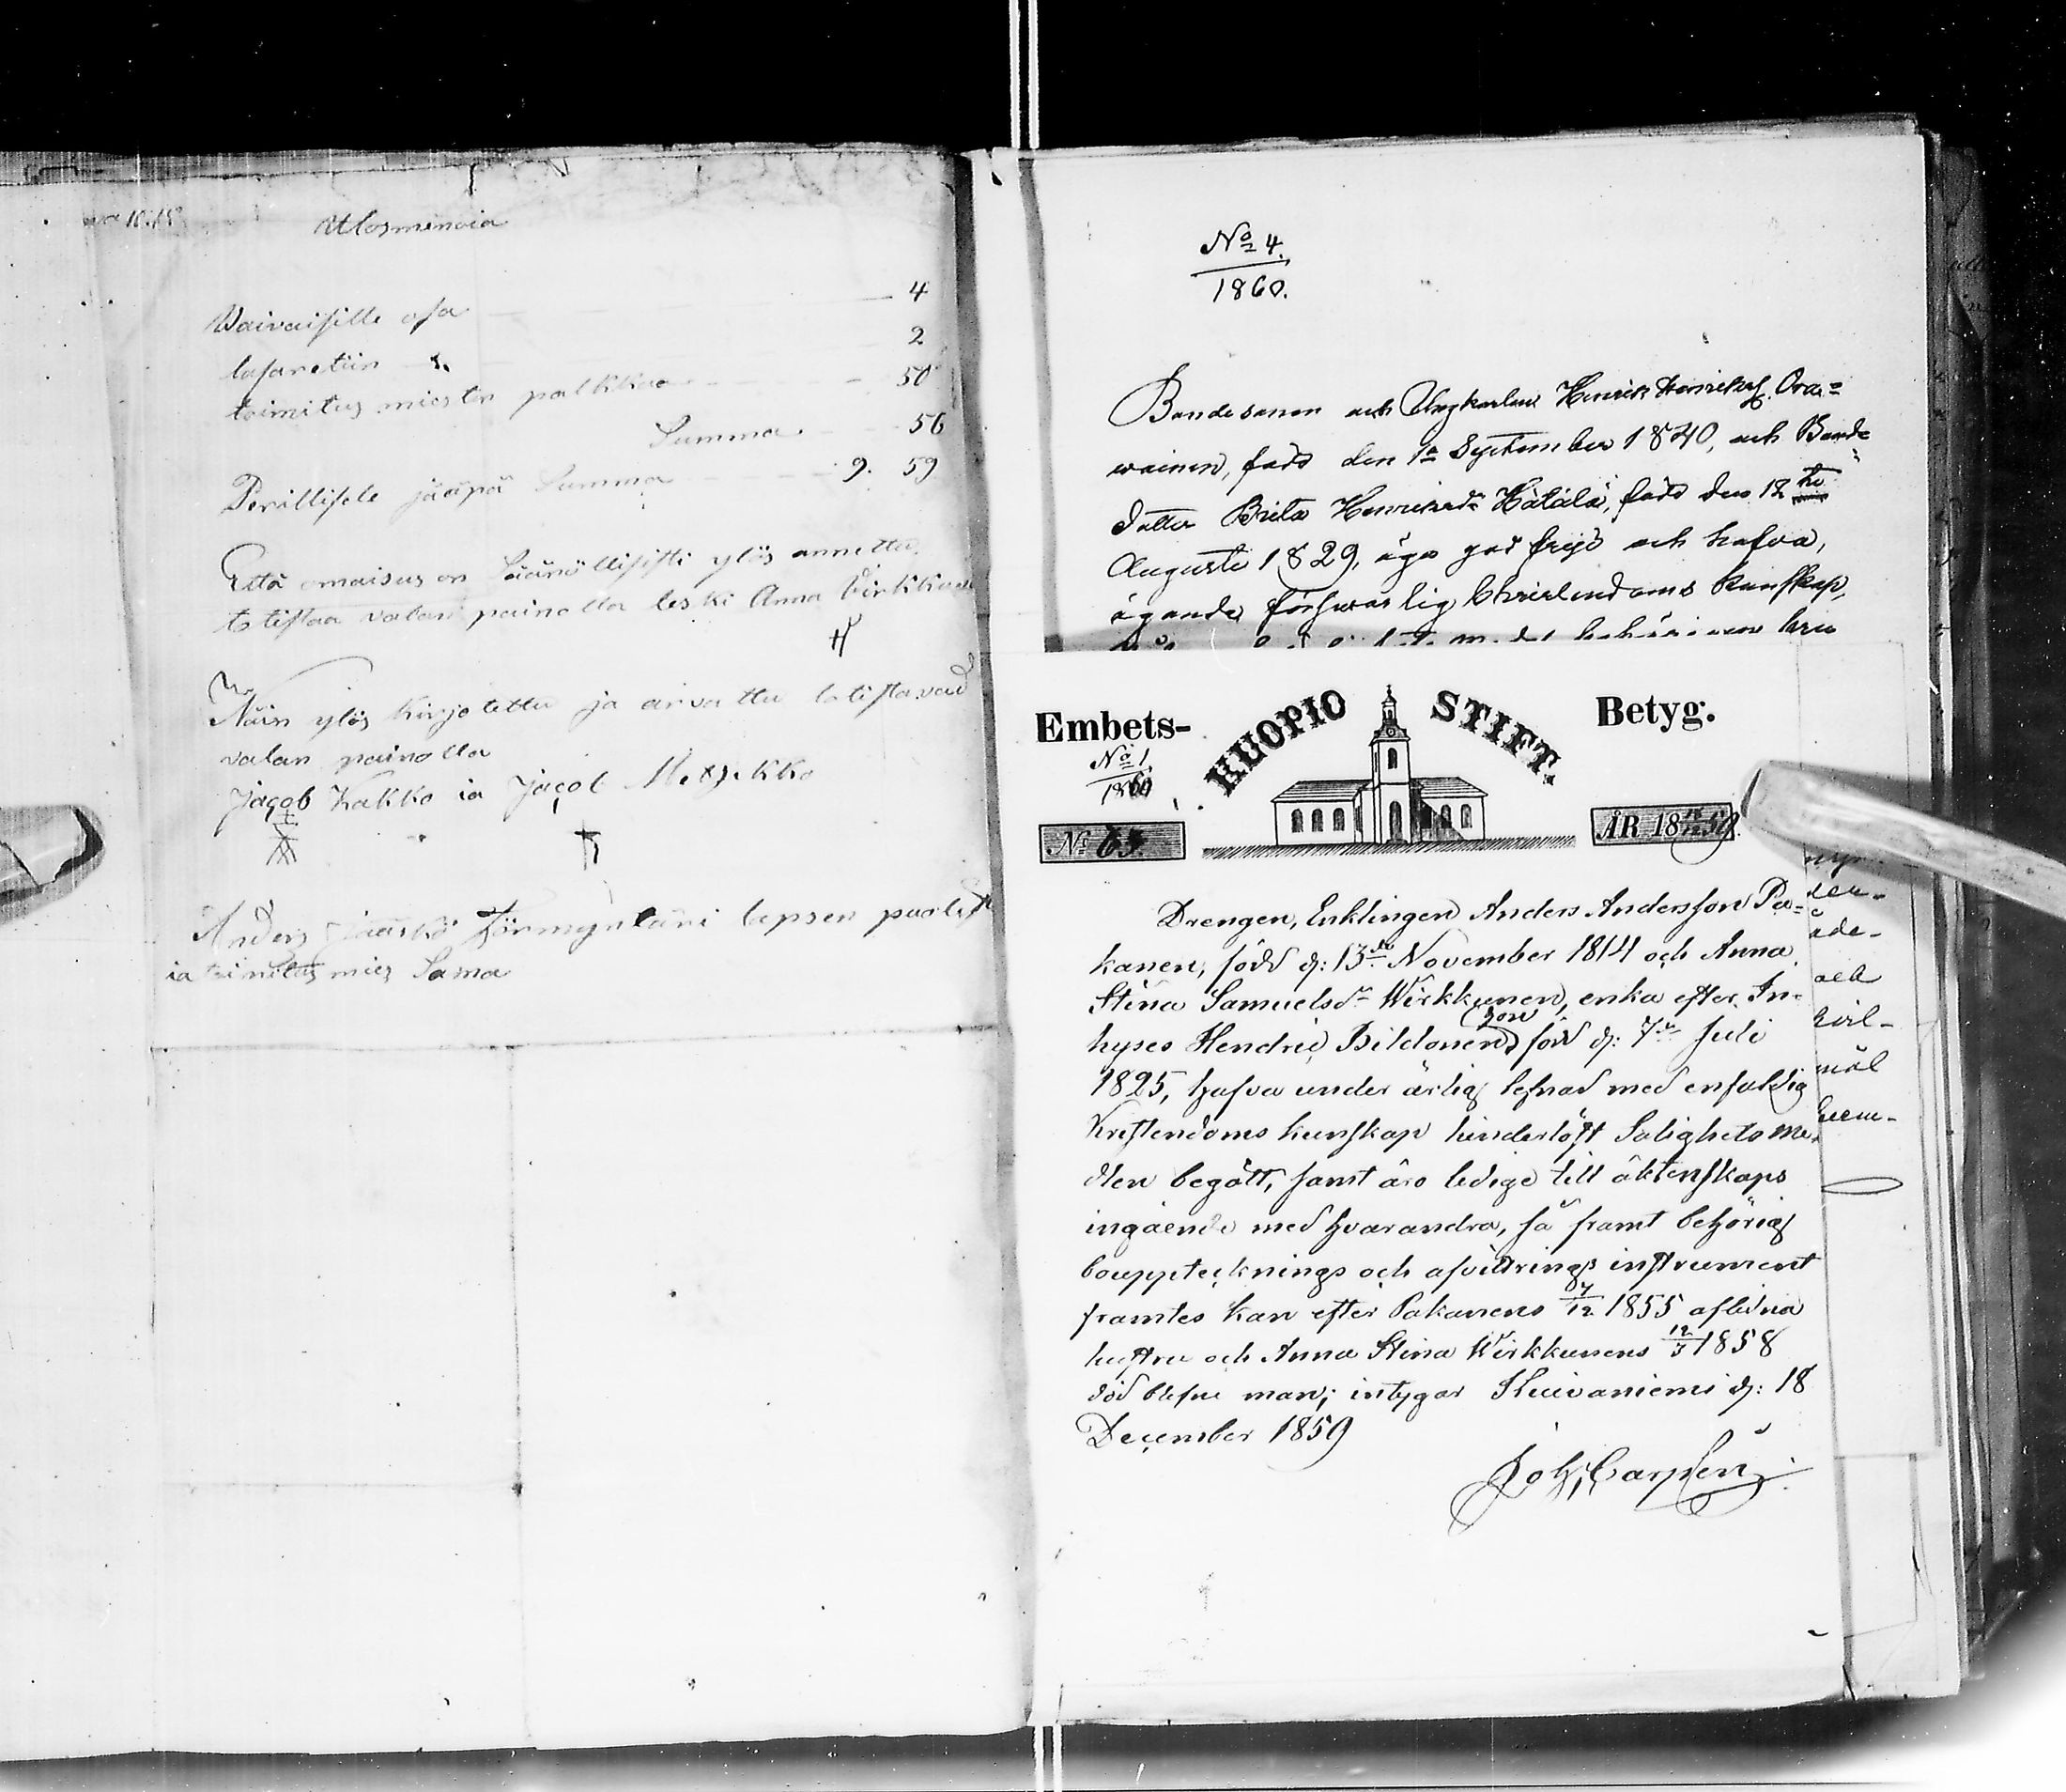 Ulosmenoia
Vaivaisille osa 4
lasaretiin 2
toimitus miesten palkkaa 50
Summa 56
Perillisele jääpä Summa 9. 59
Että omaisus on Säänöllisesti ylös annettu
totistaa valan painolla leski Anna Virkkunen
Näin ylös kirjotettu ja arvattu totistavad
valan painolla
Jacob Kakko ia Jacob
Anders Jääskö lapsen puolesta
ia toimitus mies Sama
No 4.
1860.
Bondesonen och Ungkarlen Henrik Henrikss. Ora=
wainen, född den 1a September 1840, och Bonde
dotter Brita Henriksdr Hätälä, född den 12
Augusti 1829, äga god frejd och hafva,
ägande försvarlig Christendoms kunskap,
Embets- KUOPIO STIFT. Betyg.
No 1
1860
No 65. ÅR 1859.
Drengen, Enklingen Anders Andersson Pa=
kanen, född d: 13de November 1814 och Anna
Stina Samuelsdr Wirkkunen, enka efter In-
hyses Hendric Bildonen, hon född d: 7de Juli
1825, hafva under ärlig lefnad med enfaldig
Kristendoms kunskap hinderlöst Salighets me-
dlen begått, samt äro ledige till äktenskaps
ingående med hvarandra, så framt behörig
bouppteknings och afvittrings instrument
framtes kan efter Pakanens 7/12 1855 aflidna
hustru och Anna Stina Wirkkunens 12/3 1858
död blefne man; intygar Kuivaniemi d: 18
December 1859
Joh. Carlén